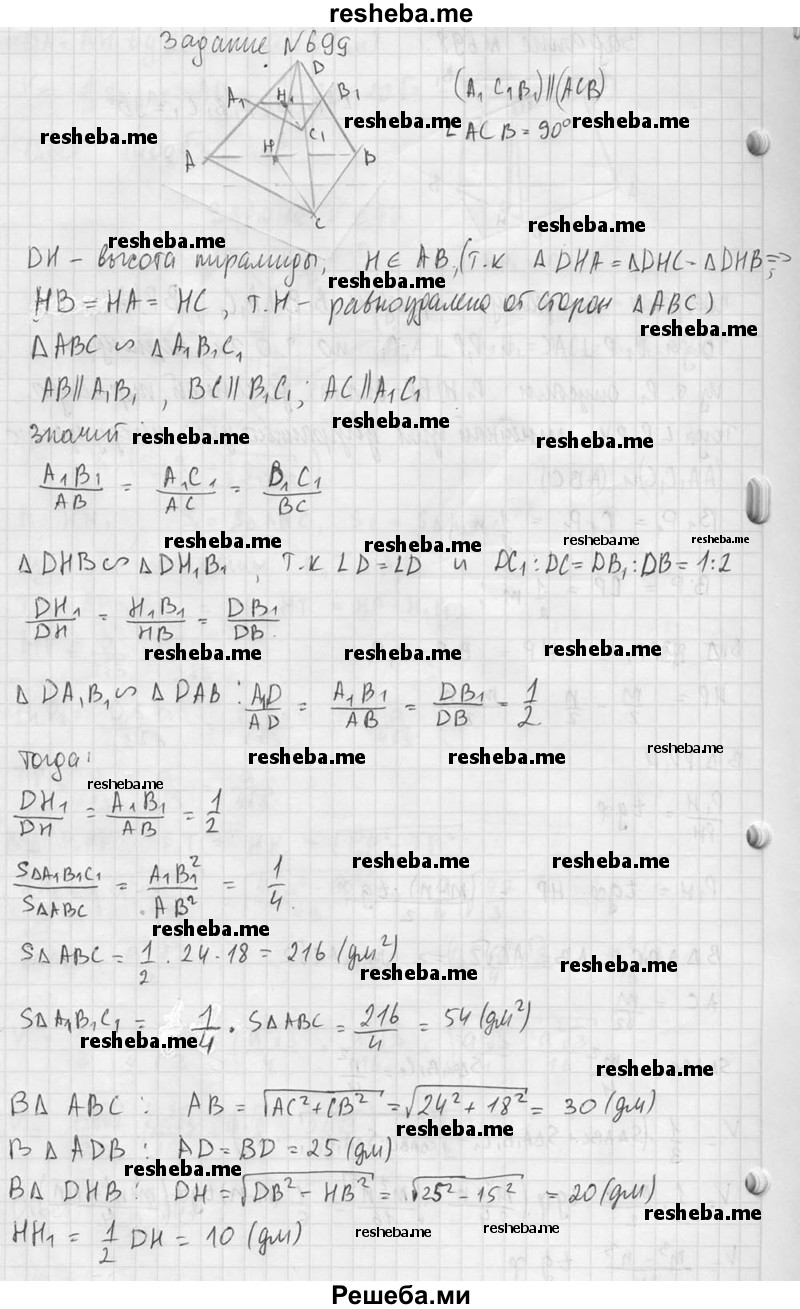 resheba.me
Задание №699
D
A₁ H₁ B₁
C₁
A H B
C
(A₁C₁B₁)||(ACB)
∠ACB = 90°
resheba.me resheba.me resheba.me
resheba.me
resheba.me
DH - высота пирамиды, H ∈ AB, (т.к ΔDHA = ΔDHC - ΔDHB ⇒
HB = HA = HC, т.H - равноудалена от сторон ΔABC)
resheba.me resheba.me
ΔABC ∽ ΔA₁B₁C₁
AB||A₁B₁, BC||B₁C₁; AC||A₁C₁
resheba.me
значит: resheba.me resheba.me
A₁B₁/AB = A₁C₁/AC = B₁C₁/BC
resheba.me resheba.me resheba.me resheba.me
ΔDHB ∽ ΔDH₁B₁, т.к ∠D = ∠D и DC₁:DC = DB₁:DB = 1:2
DH₁/DH = H₁B₁/HB = DB₁/DB
resheba.me resheba.me resheba.me
ΔDA₁B₁ ∽ ΔDAB: A₁D/AD = A₁B₁/AB = DB₁/DB = 1/2
Тогда: resheba.me resheba.me resheba.me
resheba.me
DH₁/DH = A₁B₁/AB = 1/2
resheba.me resheba.me
SΔA₁B₁C₁/SΔABC = A₁B₁²/AB² = 1/4.
resheba.me
SΔABC = 1/2 · 24 · 18 = 216 (дм²)
resheba.me resheba.me
SΔA₁B₁C₁ = 1/4 · SΔABC = 216/4 = 54 (дм²)
resheba.me
resheba.me
BΔ ABC: AB = √AC²+CB² = √24²+18² = 30 (дм)
resheba.me
BΔ ADB: AD = BD = 25 (дм)
resheba.me
BΔ DHB: DH = √DB²-HB² = √25²-15² = 20 (дм)
resheba.me
HH₁ = 1/2 DH = 10 (дм) resheba.me resheba.me
Решеба.ми